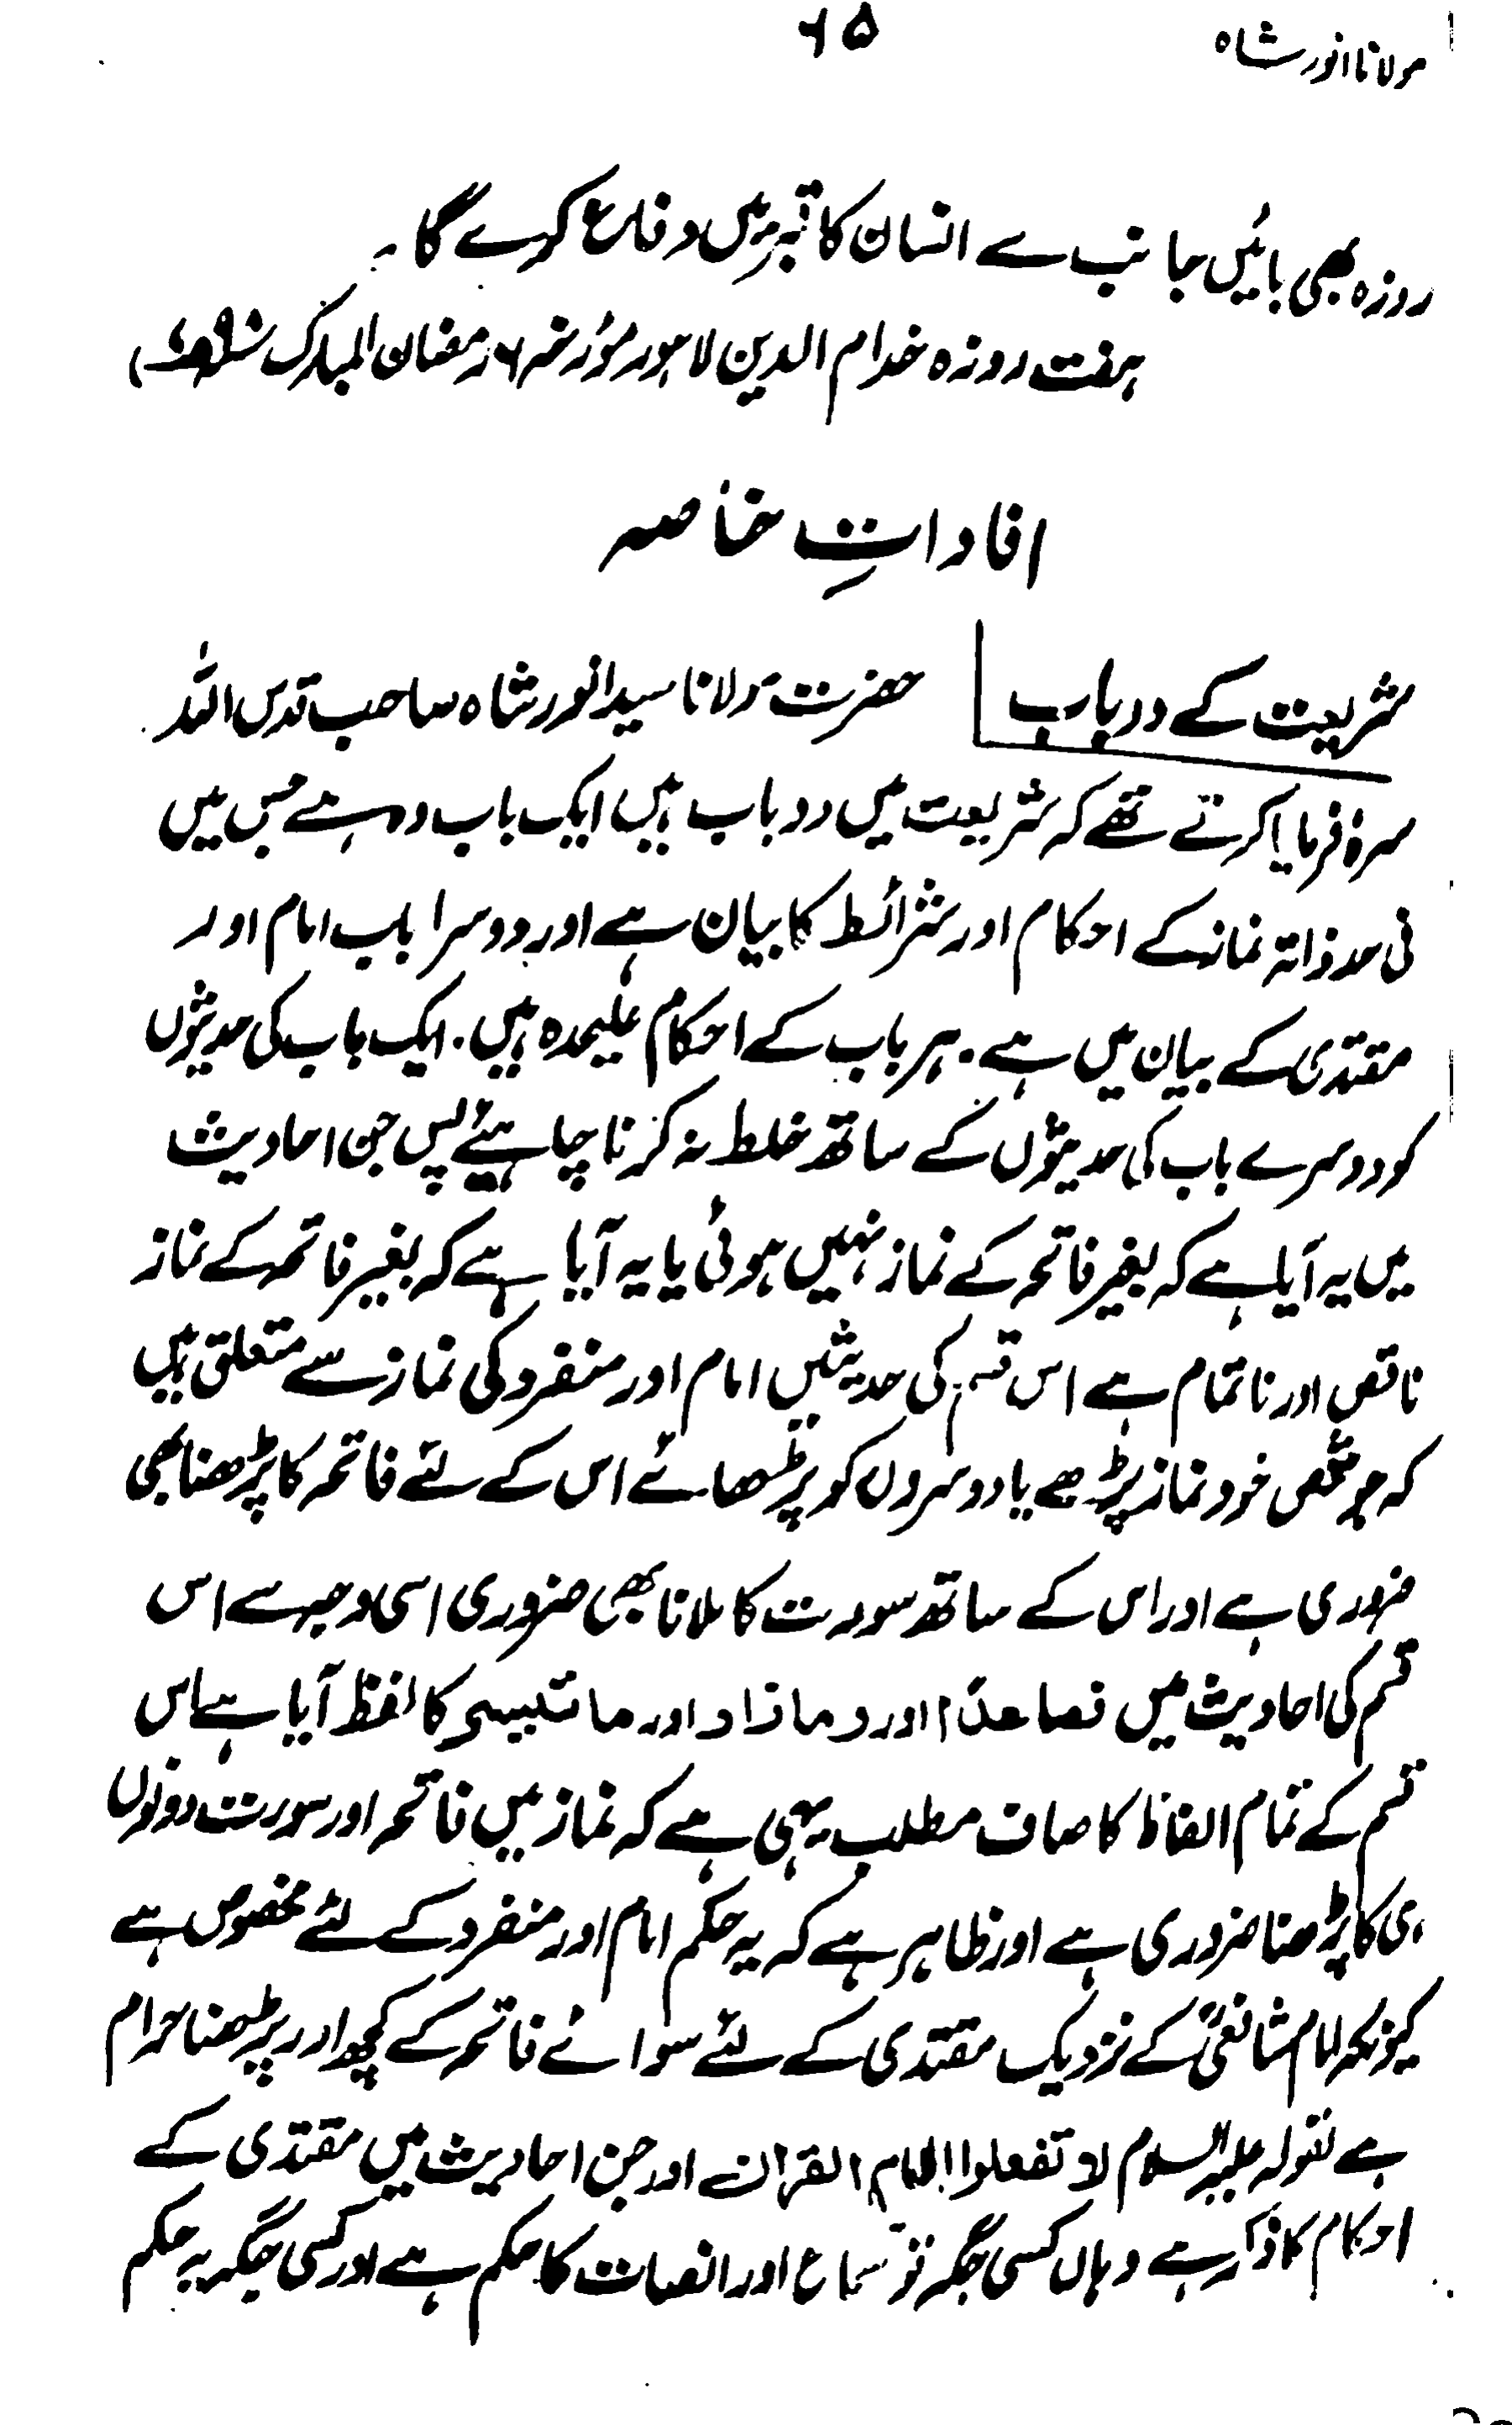 مولانا انور شاہ
۶۵
روزہ بھی بائیں جانب سے انسان کا قبر میں دفاع کرے گا۔
ہفت روزہ خدام الدین لاہور مؤرخہ ۶ رمضان المبارک
افاداتِ خاصہ
شریعت کے دو باب
حضرت مولانا سید انور شاہ صاحب قدس اللہ
سرہٗ فرمایا کرتے تھے کہ شریعت میں دو باب ہیں ایک باب وہ ہے جس میں
فی حد ذاتہٖ نماز کے احکام اور شرائط کا بیان ہے اور دوسرا باب امام اور
مقتدی کے بیان میں ہے۔ ہر باب کے احکام علیحدہ ہیں۔ ایک باب کی حدیثوں
کو دوسرے باب کی حدیثوں کے ساتھ خلط نہ کرنا چاہیئے پس جن احادیث
میں یہ آیا ہے کہ بغیر فاتحہ کے نماز نہیں ہوئی یا یہ آیا ہے کہ بغیر فاتحہ کے نماز
ناقص اور ناتمام ہے اس قسم کی حدیثیں امام اور منفرد کی نماز سے متعلق ہیں
کہ جو شخص خود نماز پڑھے یا دوسروں کو پڑھائے اس کے لئے فاتحہ کا پڑھنا بھی
ضروری ہے اور اس کے ساتھ سورت کا ملانا بھی ضروری اسی وجہ سے اس
قسم کی احادیث میں فصاعدًا اور وما زاد اور ما تیسر کا لفظ آیا ہے اس
قسم کے تمام الفاظ کا صاف مطلب یہی ہے کہ نماز میں فاتحہ اور سورت دونوں
ہی کا پڑھنا ضروری ہے اور ظاہر ہے کہ یہ حکم امام اور منفرد کے لئے مخصوص ہے
کیونکہ امام شافعیؒ کے نزدیک مقتدی کے لئے سوائے فاتحہ کے کچھ اور پڑھنا حرام
ہے لقولہ علیہ السلام لا تفعلوا الا بام القران اور جن احادیث میں مقتدی کے
احکام کا ذکر ہے وہاں کسی جگہ تو سماع اور انصات کا حکم ہے اور کسی جگہ یہ حکم